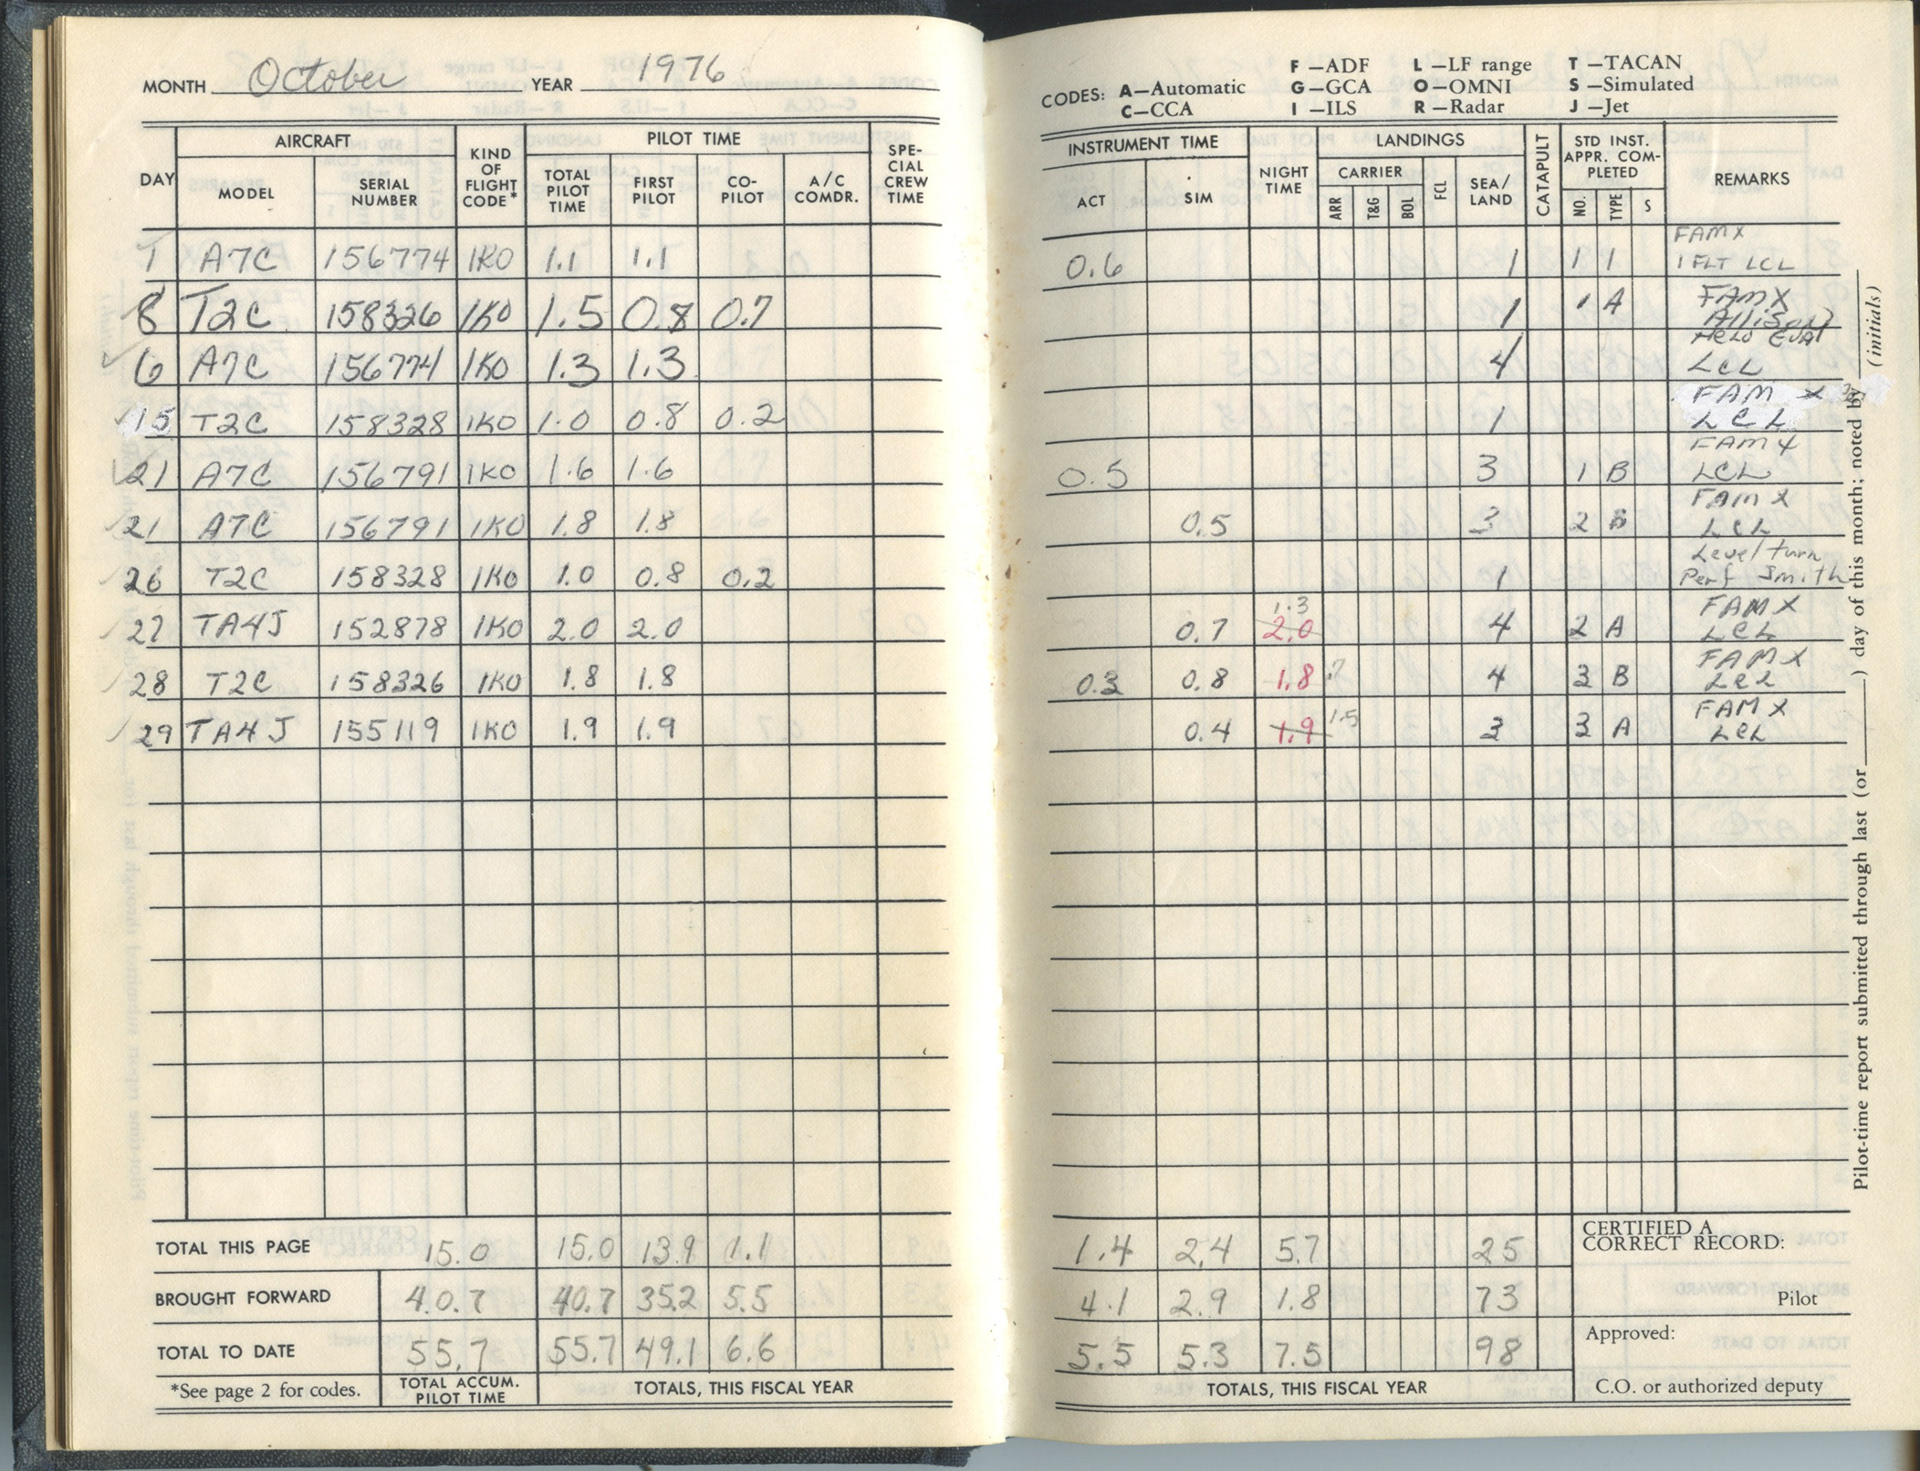 MONTH October YEAR 1976
AIRCRAFT
PILOT TIME
DAY MODEL SERIAL NUMBER KIND OF FLIGHT CODE* TOTAL PILOT TIME FIRST PILOT CO-PILOT A/C COMDR. SPE-CIAL CREW TIME
1 A7C 156774 1K0 1.1 1.1
8 T2C 158326 1K0 1.5 0.8 0.7
6 A7C 156774 1K0 1.3 1.3
15 T2C 158328 1K0 1.0 0.8 0.2
21 A7C 156791 1K0 1.6 1.6
21 A7C 156791 1K0 1.8 1.8
26 T2C 158328 1K0 1.0 0.8 0.2
27 TA4J 152878 1K0 2.0 2.0
28 T2C 158326 1K0 1.8 1.8
29 TA4J 155119 1K0 1.9 1.9
TOTAL THIS PAGE 15.0 15.0 13.9 1.1
BROUGHT FORWARD 40.7 40.7 35.2 5.5
TOTAL TO DATE 55.7 55.7 49.1 6.6
*See page 2 for codes. TOTAL ACCUM. PILOT TIME TOTALS, THIS FISCAL YEAR
CODES: A—Automatic F—ADF L—LF range T—TACAN
G—GCA O—OMNI S—Simulated
C—CCA I—ILS R—Radar J—Jet
INSTRUMENT TIME
LANDINGS
STD INST. APPR. COM-PLETED
CARRIER
ACT SIM NIGHT TIME ARR T&G BOL FCL SEA/LAND CATAPULT NO. TYPE S REMARKS
FAMX
0.6 1 1 1 1 FLT LCL
FAMX
1 1 A Allison
Helo Eval
4 LCL
FAM X
1 LCL
FAM X
0.5 3 1 B LCL
FAM X
0.5 3 2 B LCL
Level turn
1 Perf Smith
1.3 FAMX
0.7 2.0 4 2 A LCL
FAMX
0.3 0.8 1.8 ? 4 3 B LCL
1.5 FAMX
0.4 1.9 3 3 A LCL
1.4 2.4 5.7 25
4.1 2.9 1.8 73
5.5 5.3 7.5 98
TOTALS, THIS FISCAL YEAR
CERTIFIED A CORRECT RECORD:
Pilot
Approved:
C.O. or authorized deputy
Pilot-time report submitted through last (or ) day of this month; noted by (initials)